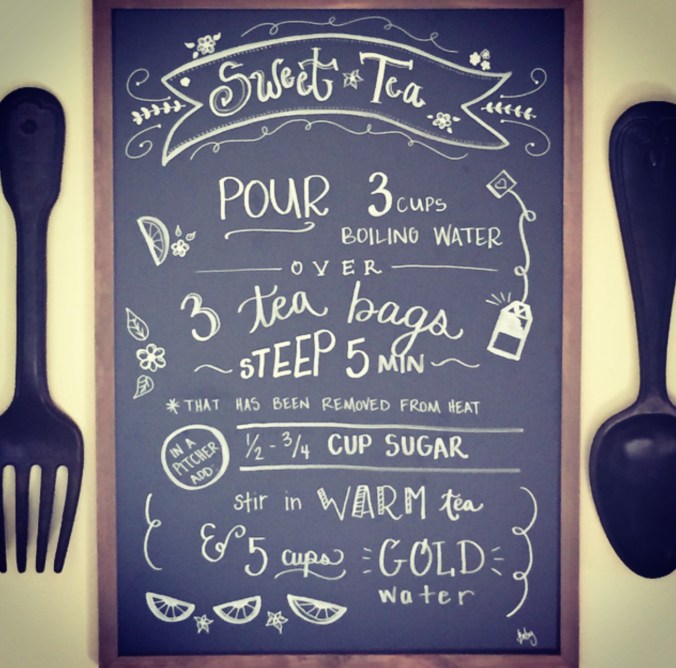 Sweet Tea
POUR 3 CUPS
BOILING WATER
OVER
3 tea bags
STEEP 5 MIN
*THAT HAS BEEN REMOVED FROM HEAT
IN A
PITCHER
ADD-
1/2 - 3/4 CUP SUGAR
stir in WARM tea
& 5 cups GOLD
water